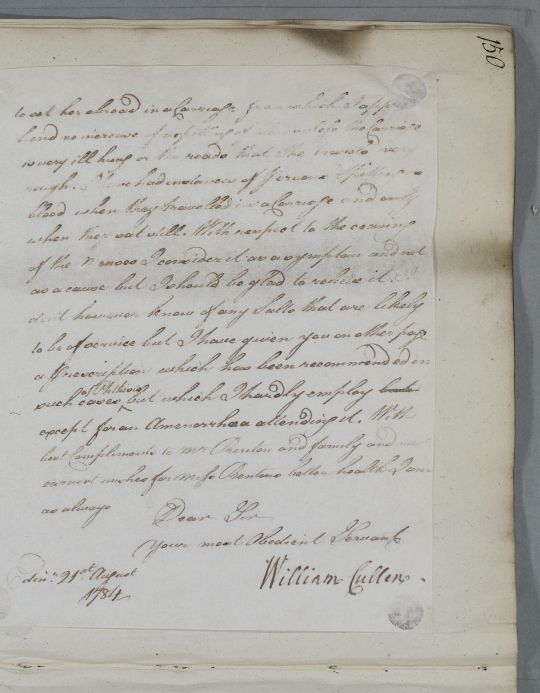 150
to eat her abroad in a Carriage from which I app
hend no increase of a spitting of blood unless the Carriage
is very ill hung or the roads that she travels very
rough. I have had instances of Persons Spitting
blood when they travelled in a Carriage and only
when they sat still. With respect to the ceasing
of the Menses I consider it as a symptom and not
as a cause but I should be glad to relieve it. I
don't however know of any Salts that are likely
to be of service but I have given you on other page
a Prescription which has been recommended in
such cases of Phthisis but which I hardly employ
except for an Amenorrhœa attending it. With
best Compliments to Mr Renton and family and most
earnest wishes for Miss Rentons better health I am
as always
Dear Sir
Your most Obedient Servant
William Cullen.
Edinr. 21st. August
1784